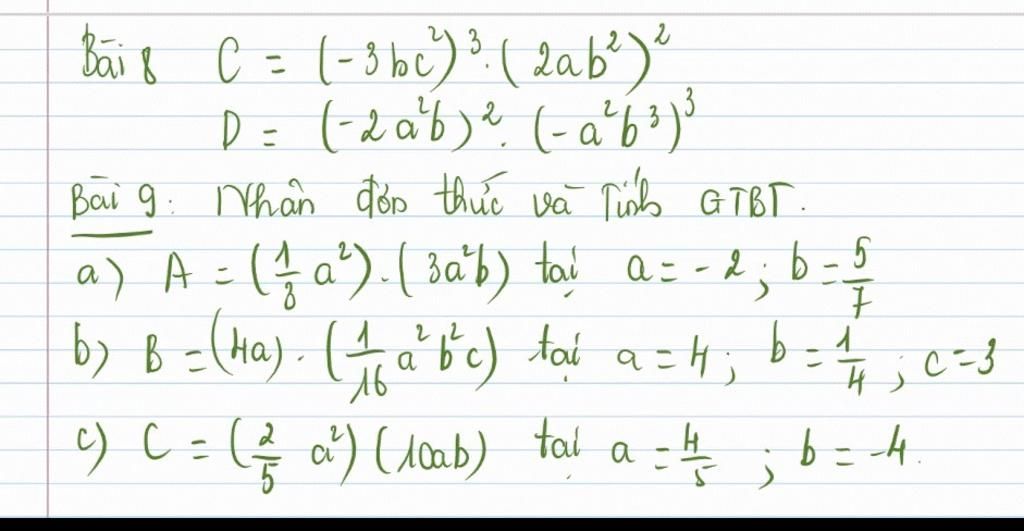 Bài 8 C = (-3bc²)³.(2ab²)²
D = (-2a²b)².(-a²b³)³
Bài 9: Nhân đơn thức và Tính GTBT.
a) A = (1/3 a²).(3a²b) tại a = -2; b = 5/7
b) B = (4a).(1/16 a²b²c) tại a = 4; b = 1/4; c = 3
c) C = (2/5 a²)(10ab) tại a = 4/5; b = -4.